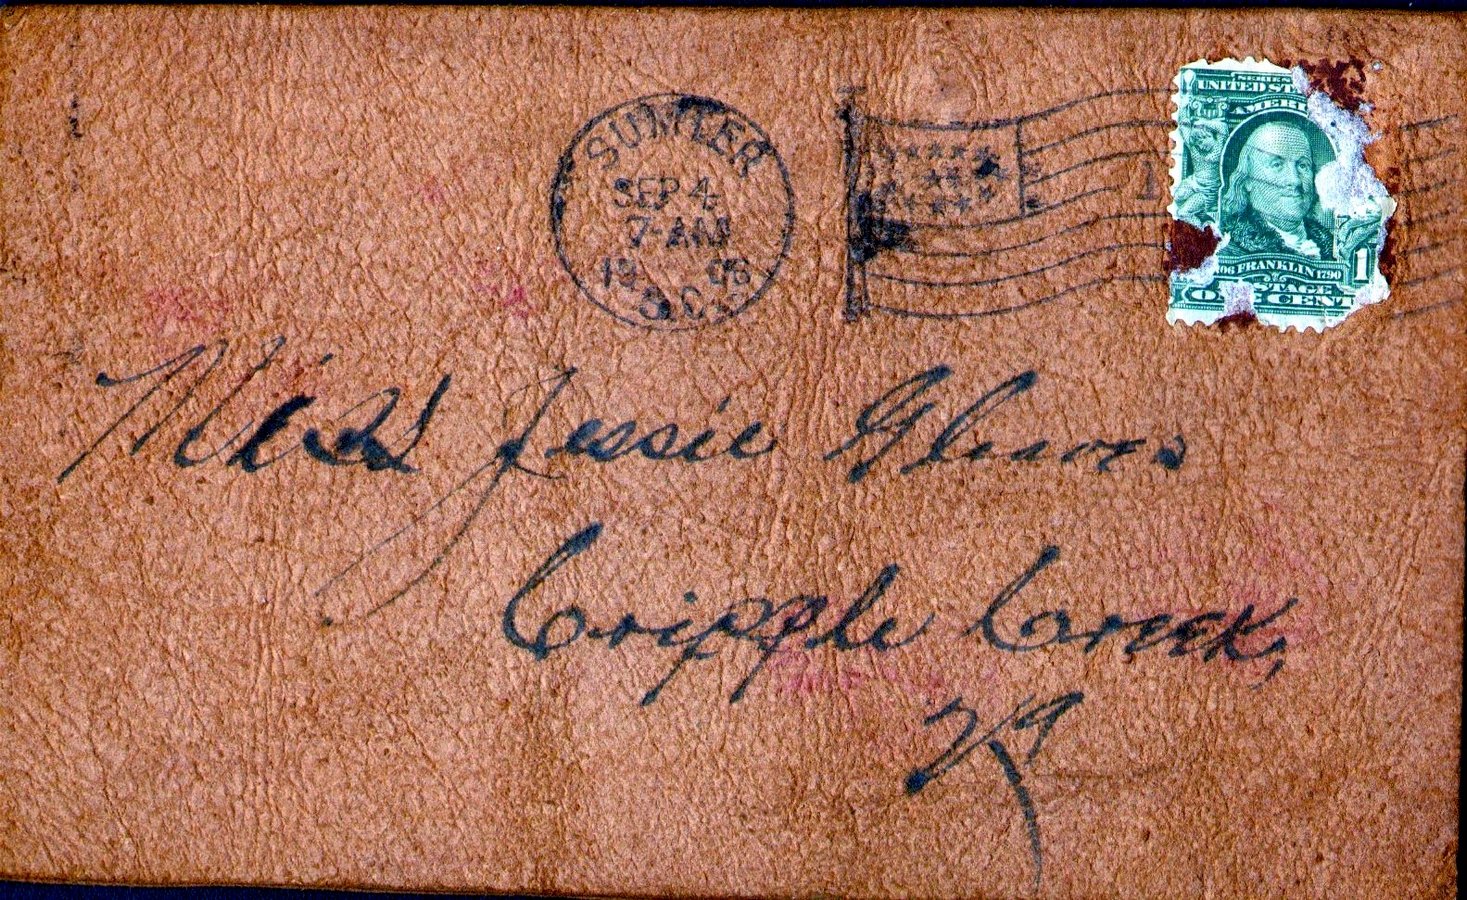 SUMTER
SEP 4
7-AM
1906
S.C.
1
SERIES
UNITED ST
AMERI
06 FRANKLIN 1790
POSTAGE
1
ONE CENT
Miss Jessie Gleaves
Cripple Creek,
Va